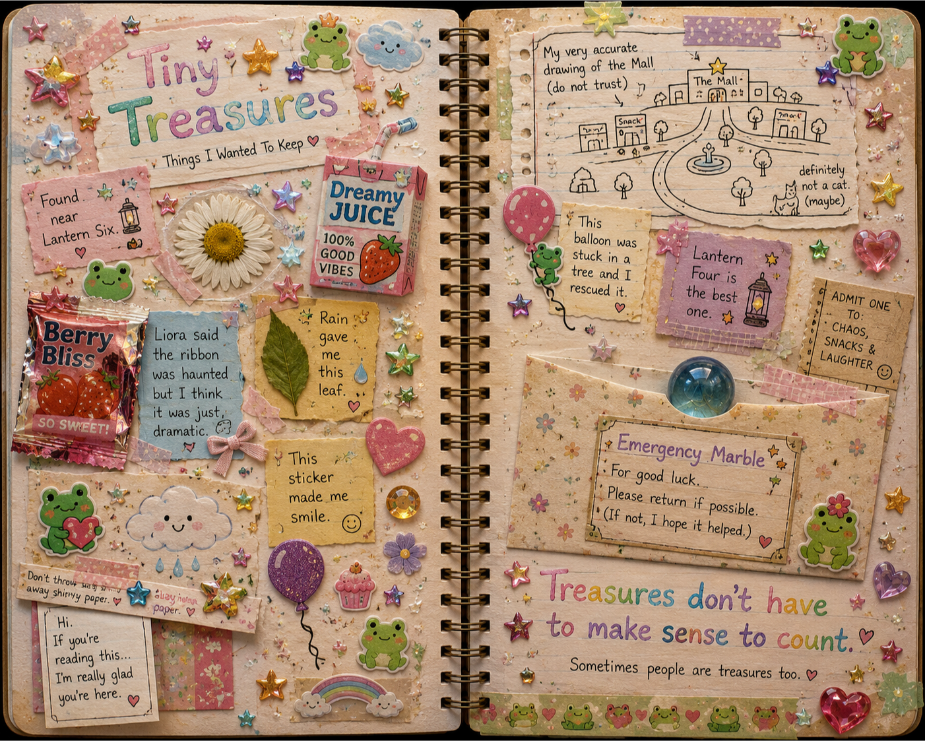 Tiny
Treasures
Things I Wanted To Keep
Found
near
Lantern Six.
Dreamy
JUICE
100%
GOOD
VIBES
Berry
Bliss
SO SWEET!
Liora said
the ribbon
was haunted
but I think
it was just
dramatic.
Rain
gave
me
this
leaf.
This
sticker
made me
smile.
Don't throw
away shinyy paper.
paper.
Hi.
If you're
reading this...
I'm really glad
you're here.
My very accurate
drawing of the Mall
(do not trust)
The Mall
Snack
definitely
not a cat.
(maybe)
This
balloon was
stuck in a
tree and I
rescued it.
Lantern
Four is
the best
one.
ADMIT ONE
TO:
CHAOS,
SNACKS &
LAUGHTER
Emergency Marble
For good luck.
Please return if possible.
(If not, I hope it helped.)
Treasures don't have
to make sense to count.
Sometimes people are treasures too.